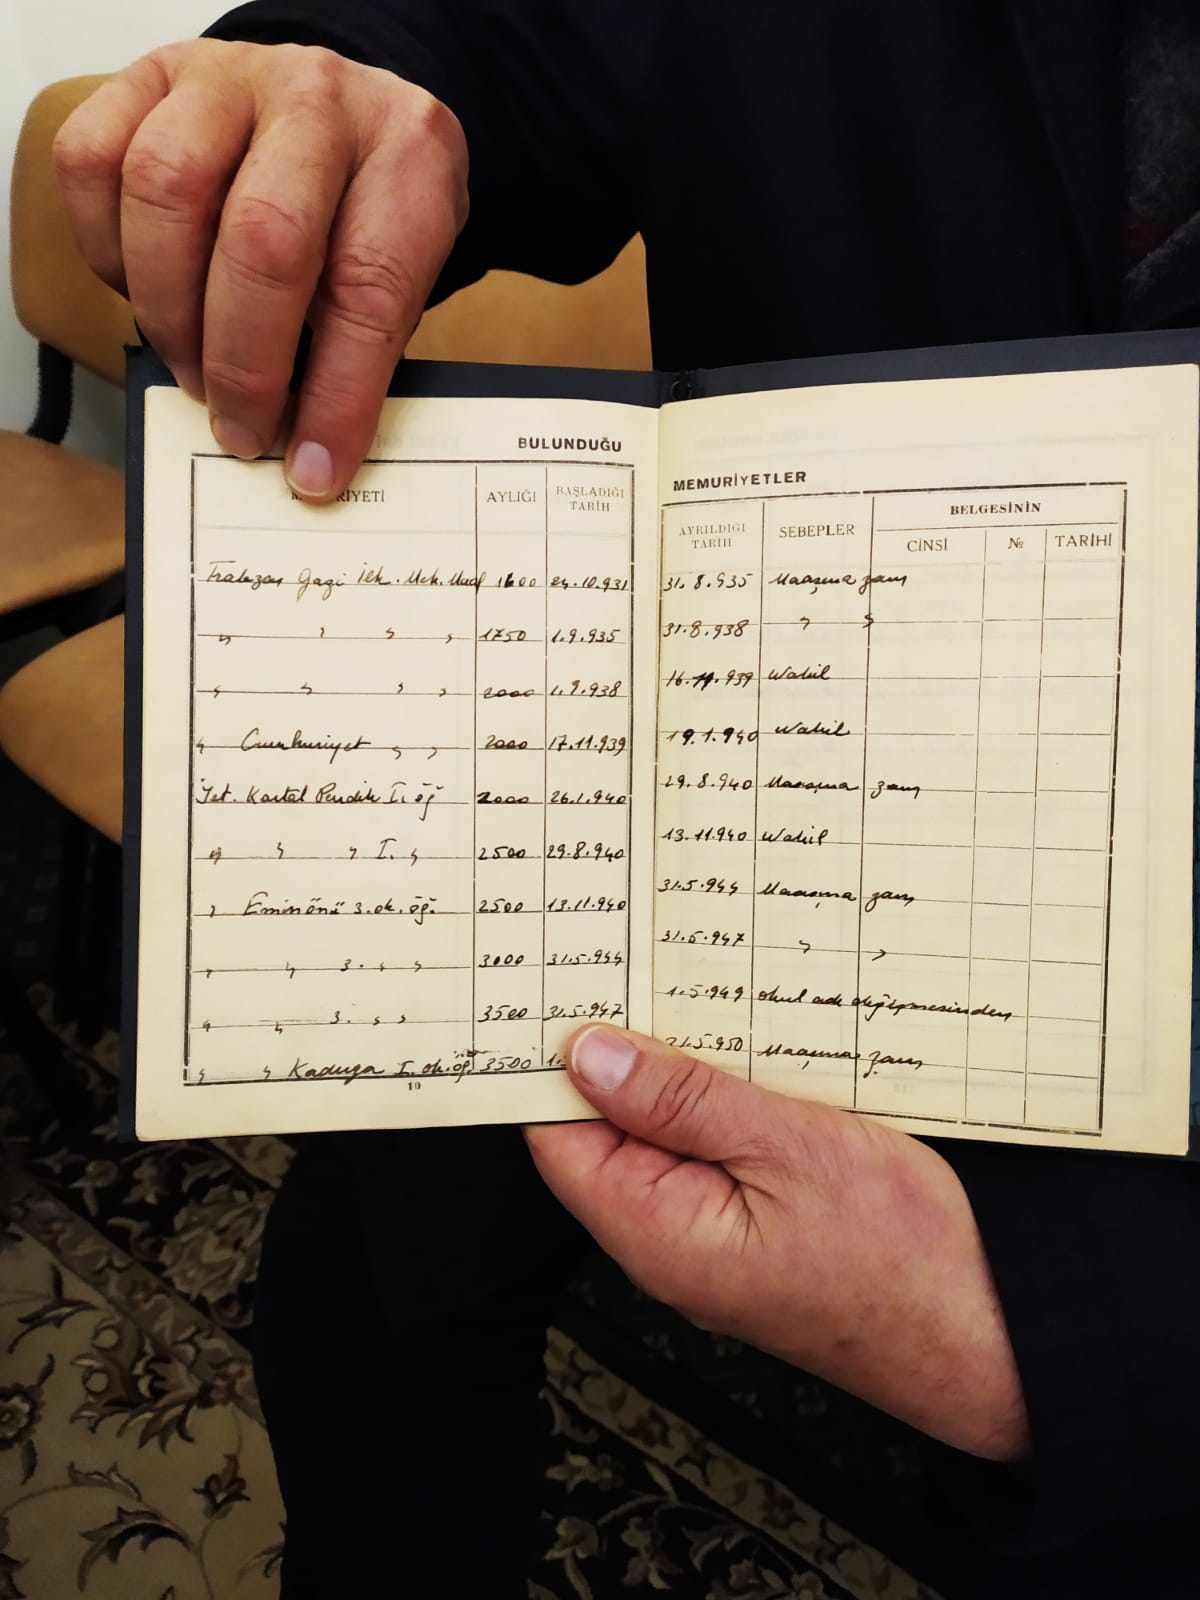 BULUNDUĞU
RİYETİ AYLIĞI BAŞLADIĞI TARİH
Trabzon Gazi İlk. Mek. Mual 1600 24.10.931
" " " " 1750 1.9.935
" " " " 2000 1.9.938
" Cumhuriyet " " 2000 17.11.939
İst. Kartal Pendik I. öğ 2000 26.1.940
" " " I. " 2500 29.8.940
" Eminönü 3. ok. öğ. 2500 13.11.940
" " 3. " " 3000 31.5.944
" " 3. " " 3500 31.5.947
" " Kadırga I. ok. öğ. 3500 1.
10
MEMURİYETLER
AYRILDIĞI TARİH SEBEPLER BELGESİNİN
CİNSİ № TARİHİ
31.8.935 Maaşına zam
31.8.938 " "
16.11.939 Nakil
19.1.940 Nakil
29.8.940 Maaşına zam
13.11.940 Nakil
31.5.944 Maaşına zam
31.5.947 " "
1.5.949 okul adı değişmesinden
21.5.950 Maaşına zam